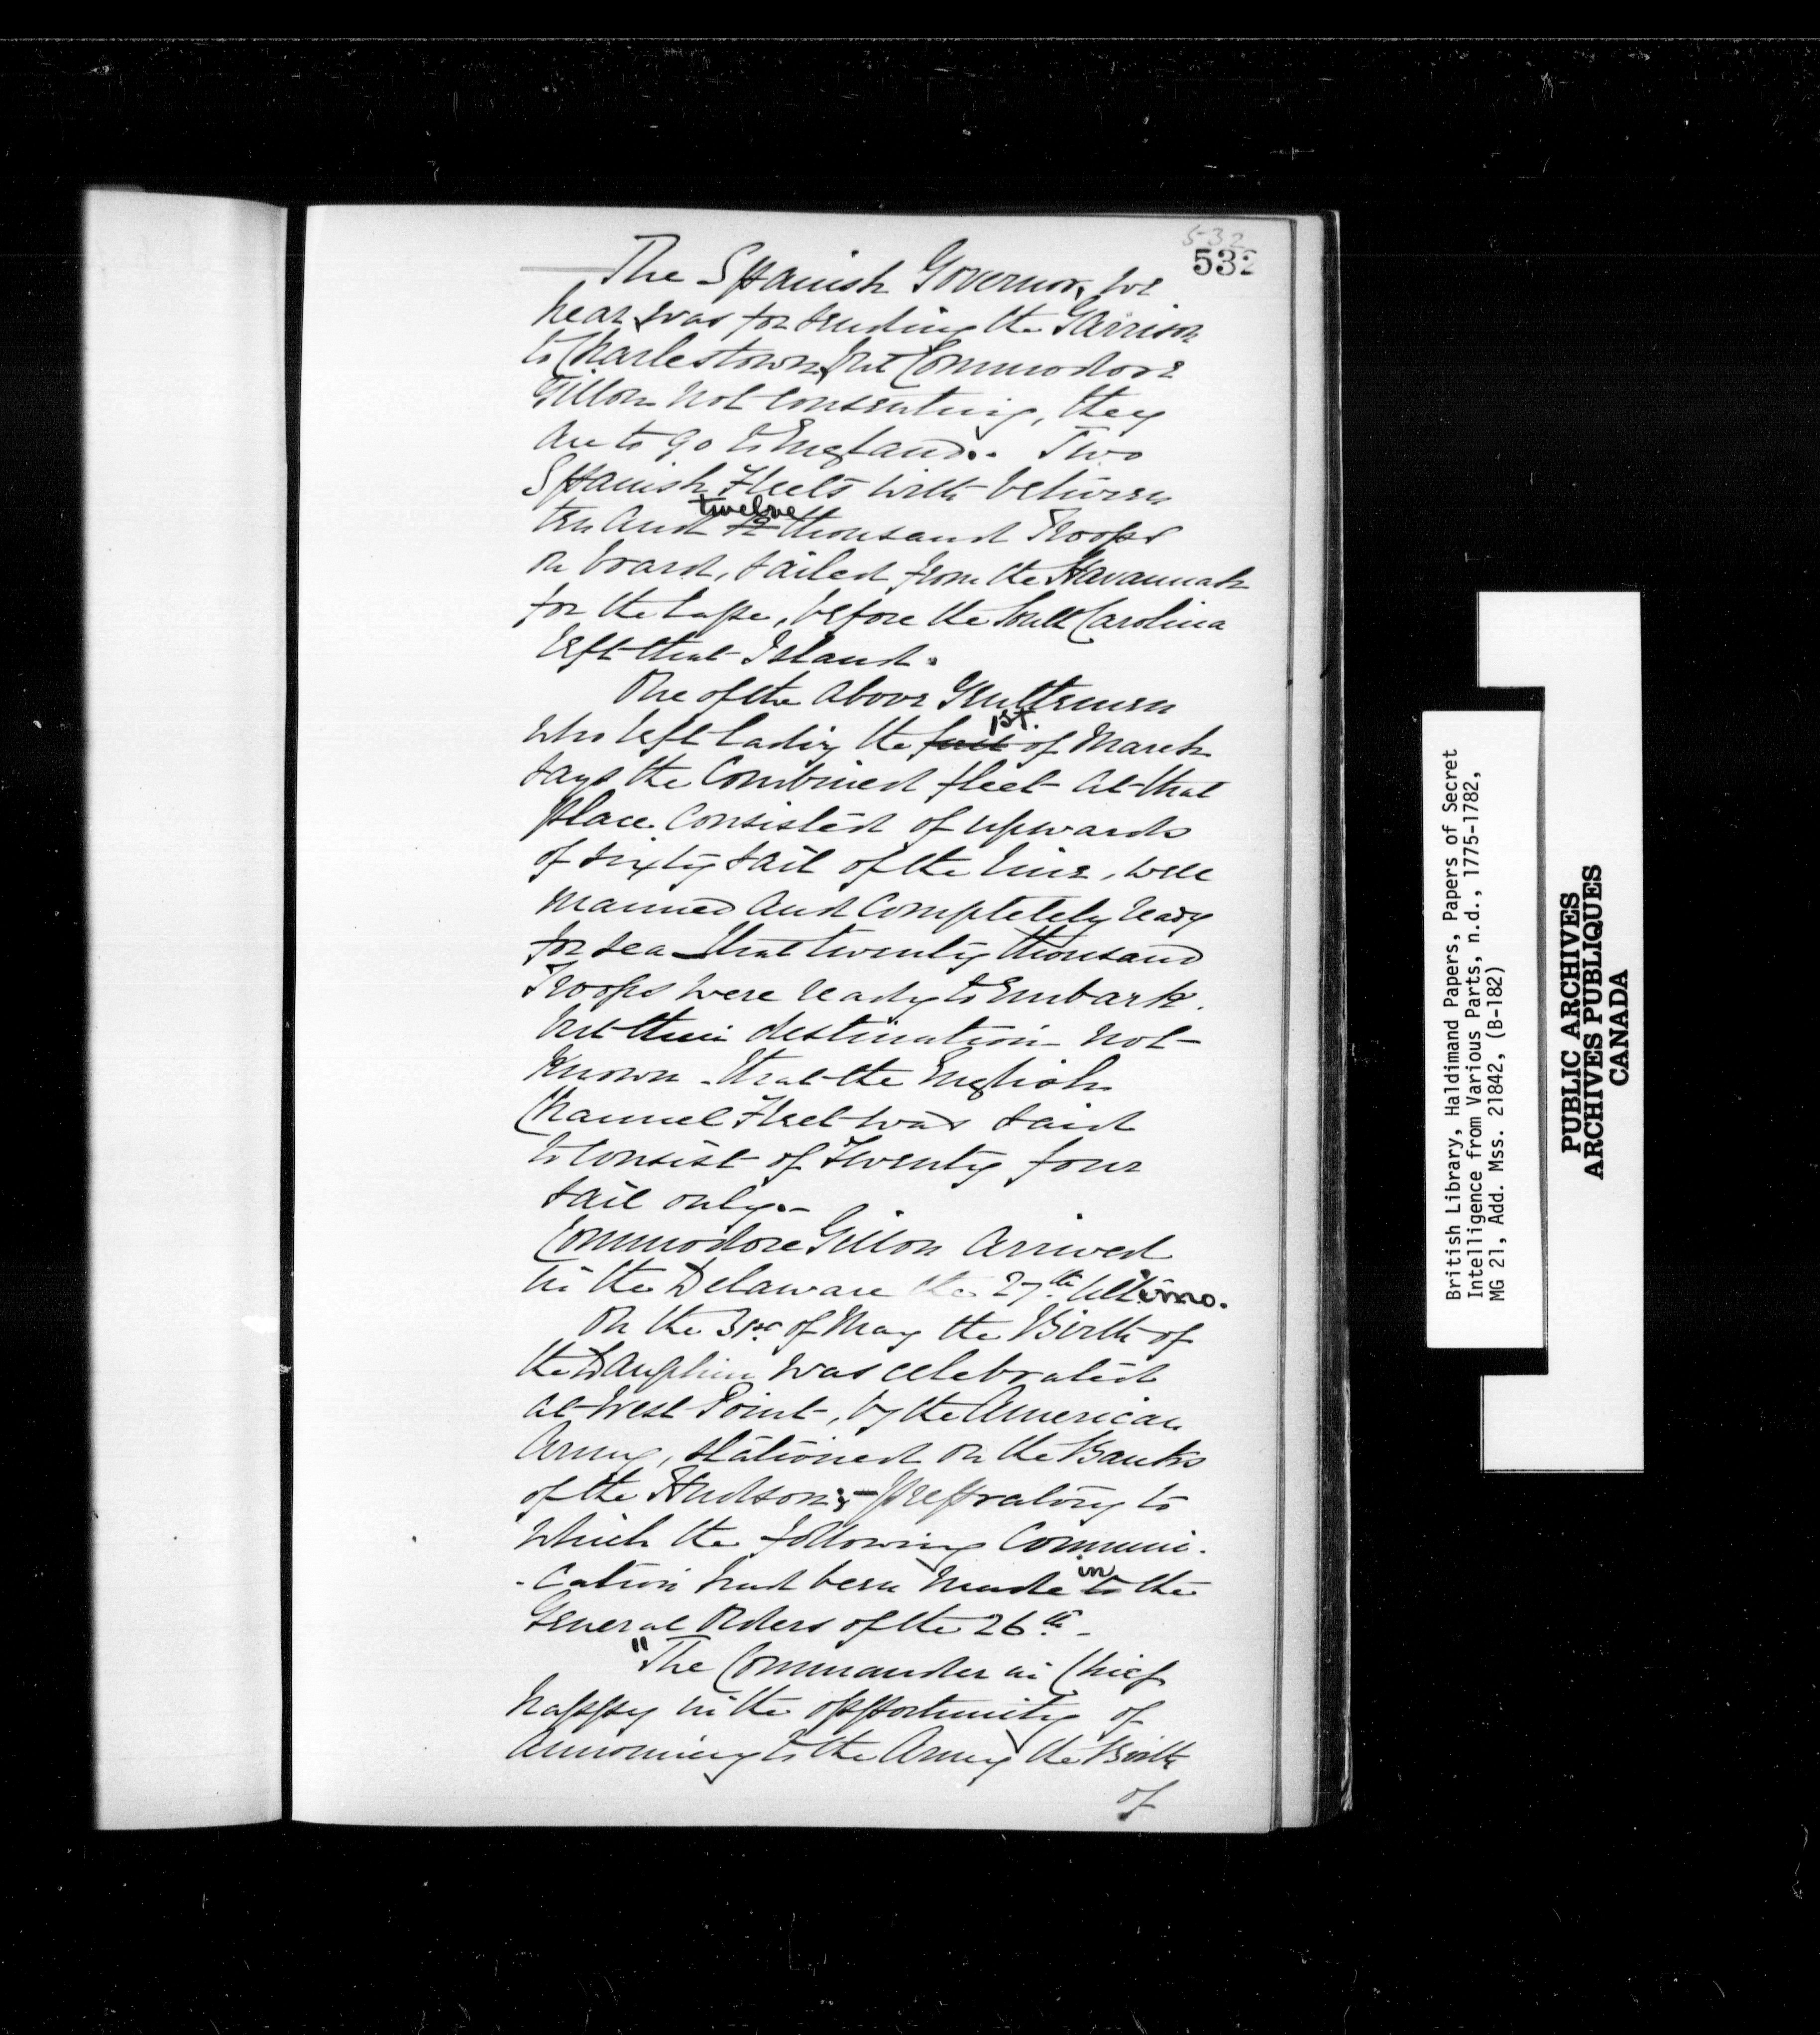 532
532
The Spanish Governor, we
hear, was for sending the Garrison
to Charlestown, but Commodore
Gillon not consenting, they
are to go to England.. Two
Spanish Fleets with between
twelve
ten and 12 thousand Troops
on board, sailed from the Havannah
for the Cape, before the South Carolina
left that Island.
One of the above Gentlemen
1st.
who left Cadiz the first of March
says the Combined fleet at that
place. Consisted of upwards
of sixty sail of the line, well
manned and completely ready
for sea – that twenty thousand
Troops were ready to Embark.
but their destination not
known – that the English
Channel Fleet was said
to consist of Twenty four
sail only.–
Commodore Gillon arrived
in the Delaware the 27th ultimo.
On the 31st of May the Birth of
the Dauphin was celebrated
at West Point, by the American
Army, stationed on the Banks
of the Hudson; – prepratory to
which the following Communi-
-cation had been made
in
to the
General Orders of the 26th –
"The Commander in Chief
happy in the opportunity of
announcing to the Army the Birth
of
British Library, Haldimand Papers, Papers of Secret
Intelligence from Various Parts, n.d., 1775-1782,
MG 21, Add. Mss. 21842, (B-182)
PUBLIC ARCHIVES
ARCHIVES PUBLIQUES
CANADA